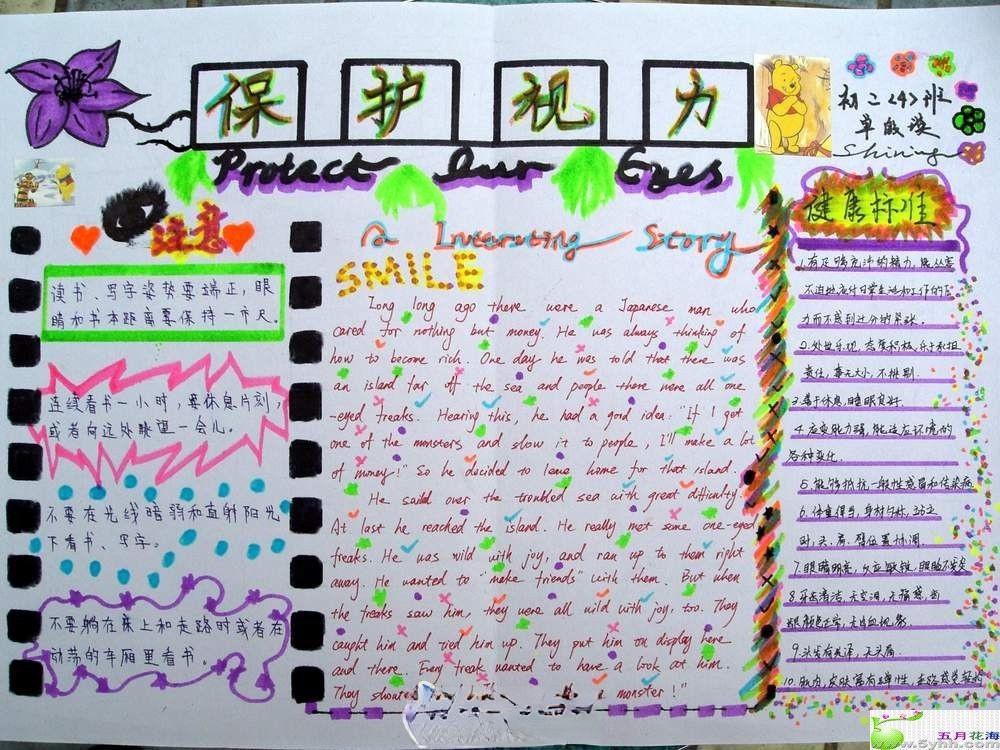 保护视力
Protect Our Eyes
初二〈4〉班
Shining
注意
读书、写字姿势要端正,眼
睛和书本距离要保持一市尺。
连续看书一小时,要休息片刻,
或者向远处眺望一会儿。
不要在光线暗弱和直射阳光
下看书、写字。
不要躺在床上和走路时或者在
动荡的车厢里看书。
A Interesting Story
SMILE
Long long ago there were a Japanese man who
cared for nothing but money. He was always thinking of
how to become rich. One day he was told that there was
an island far off the sea and people there were all one
-eyed freaks. Hearing this, he had a good idea. "If I get
one of the monsters and show it to people, I'll make a lot
of money!" So he decided to leave home for that island.
He saild over the troubled sea with great difficulty.
At last he reached the island. He really met some one-eyed
freaks. He was wild with joy, and ran up to them right
away. He wanted to "make friends" with them. But when
the freaks saw him, they were all wild with joy, too. They
caught him and tied him up. They put him on display here
and there. Every freak wanted to have a look at him.
They a monster!"
健康标准
1.有足够充沛的精力,能从容
不迫地应付日常生活和工作的压
力而不感到过分的紧张.
2.处事乐观,态度积极,乐于承担
责任,事无大小,不挑剔.
3.善于休息,睡眠良好.
4.应变能力强,能适应环境的
各种变化.
5.能够抵抗一般性感冒和传染病
6.体重得当,身材匀称,站立
时,头、肩、臂位置协调.
7.眼睛明亮,反应敏锐,眼睑不发炎
8.牙齿清洁,无空洞,无痛感,齿
龈颜色正常,无出血现象.
9.头发有光泽,无头屑.
10.肌肉,皮肤富有弹性,走路感觉轻松
五月花海
www.5yhh.com